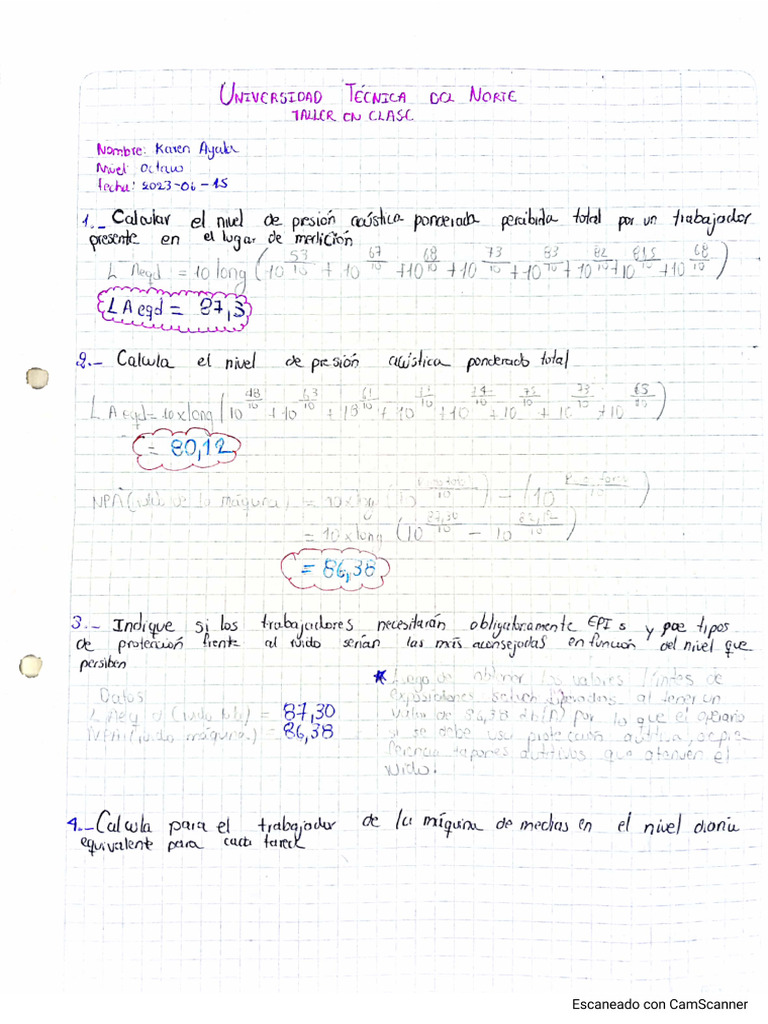 UNIVERSIDAD TÉCNICA DEL NORTE
TALLER EN CLASE
Nombre: Karen Ayala
Nivel: Octavo
fecha: 2023-06-15
1._ Calcular el nivel de presión acústica ponderada percibida total por un trabajador
presente en el lugar de medición
L Aeqd = 10 long (10^53/10 + 10^67/10 + 10^68/10 + 10^73/10 + 10^83/10 + 10^82/10 + 10^81,5/10 + 10^68/10)
LAeqd = 87,3
2.- Calcula el nivel de presión acústica ponderado total
L Aeqd = 10 x long (10^48/10 + 10^63/10 + 10^61/10 + 10 + 10 + 10 + 10^73/10 + 10^65/10)
= 80,12
NPA (ruido de la máquina) = 10 x log
= 10 x long (10^87,30/10 - 10
= 86,38
3.- Indique si los trabajadores necesitarán obligatoramente EPI s y que tipos
de protección frente al ruido serían las más aconsejadas en función del nivel que
persiben
* Luego de obtener los valores límites de
al tener un
Datos
L Aeq d (ruido total) = 87,30
valor de 86,38 db(A) por lo que el operario
NPA (ruido máquina.) = 86,38
si se debe usa protección auditiva, se
tapones auditivos que atenúen el
ruido.
4.- Calcula para el trabajador de la máquina de mechas en el nivel diario
equivalente para cada tarea
Escaneado con CamScanner